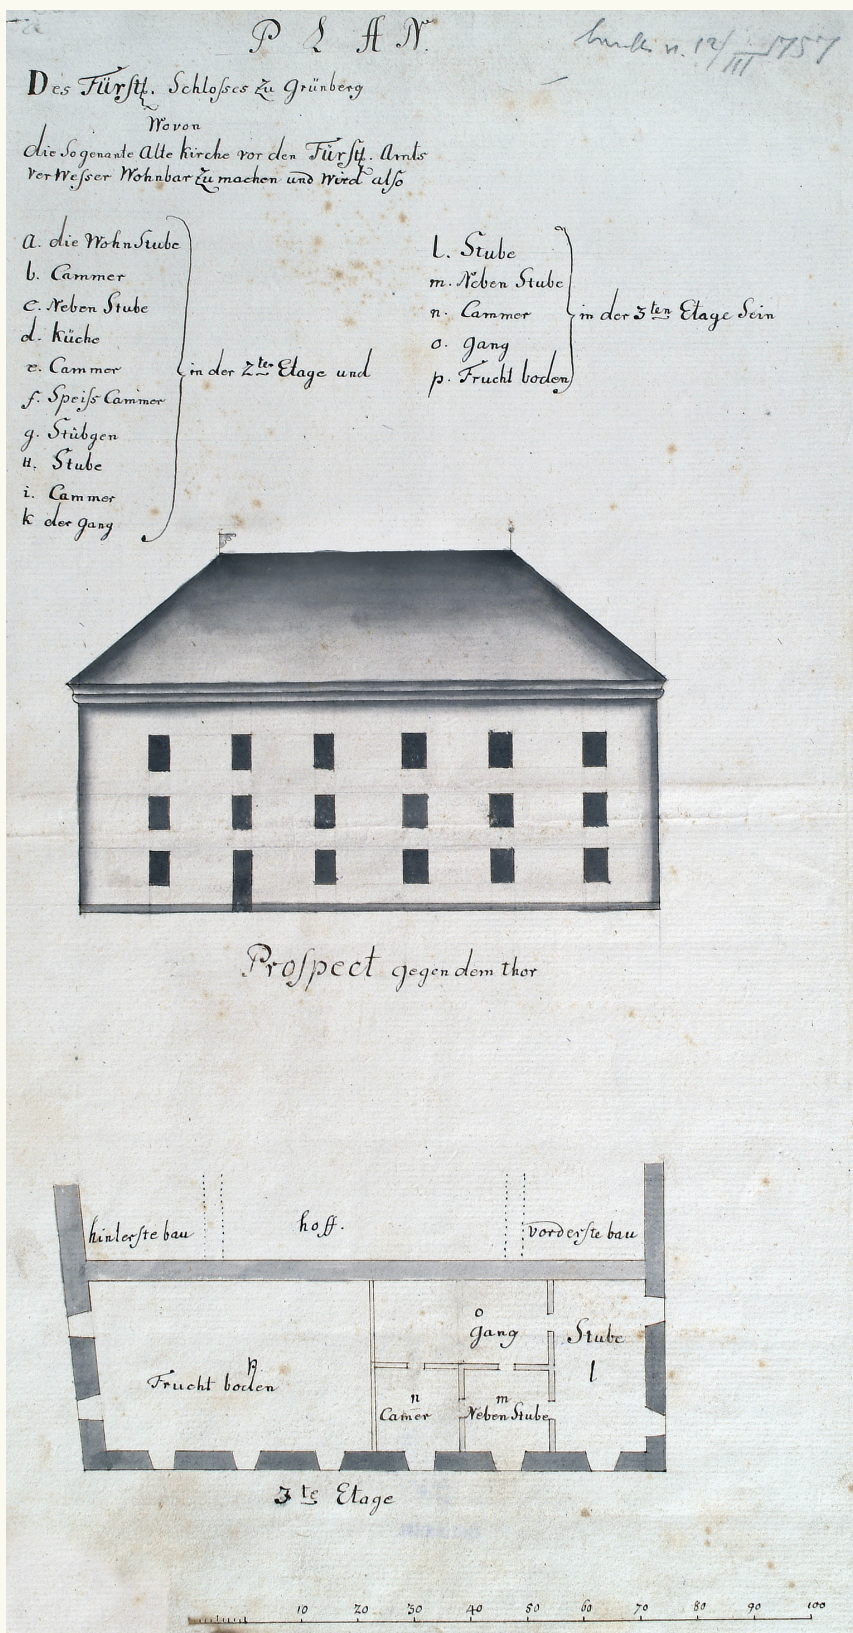 PLAN.
Des Fürstl. Schlosses zu Grünberg
Wovon
die Sogenante Alte kirche vor den Fürstl. Amts
verWesser Wohnbar zu machen und wird also
a. die WohnStube
b. Cammer
c. Neben Stube
d. Küche
e. Cammer
f. Speiss Cammer
g. Stübgen
H. Stube
i. Cammer
k der gang
in der 2ten Etage und
l. Stube
m. Neben Stube
n. Cammer
o. gang
p. Frucht boden
in der 3ten Etage Sein
12/III 1757
Prospect gegen dem thor
hinterste bau
hoff.
vorderste bau
o
gang
Stube
l
p
Frucht boden
n
Camer
m
Neben Stube
3te Etage
10 20 30 40 50 60 70 80 90 100